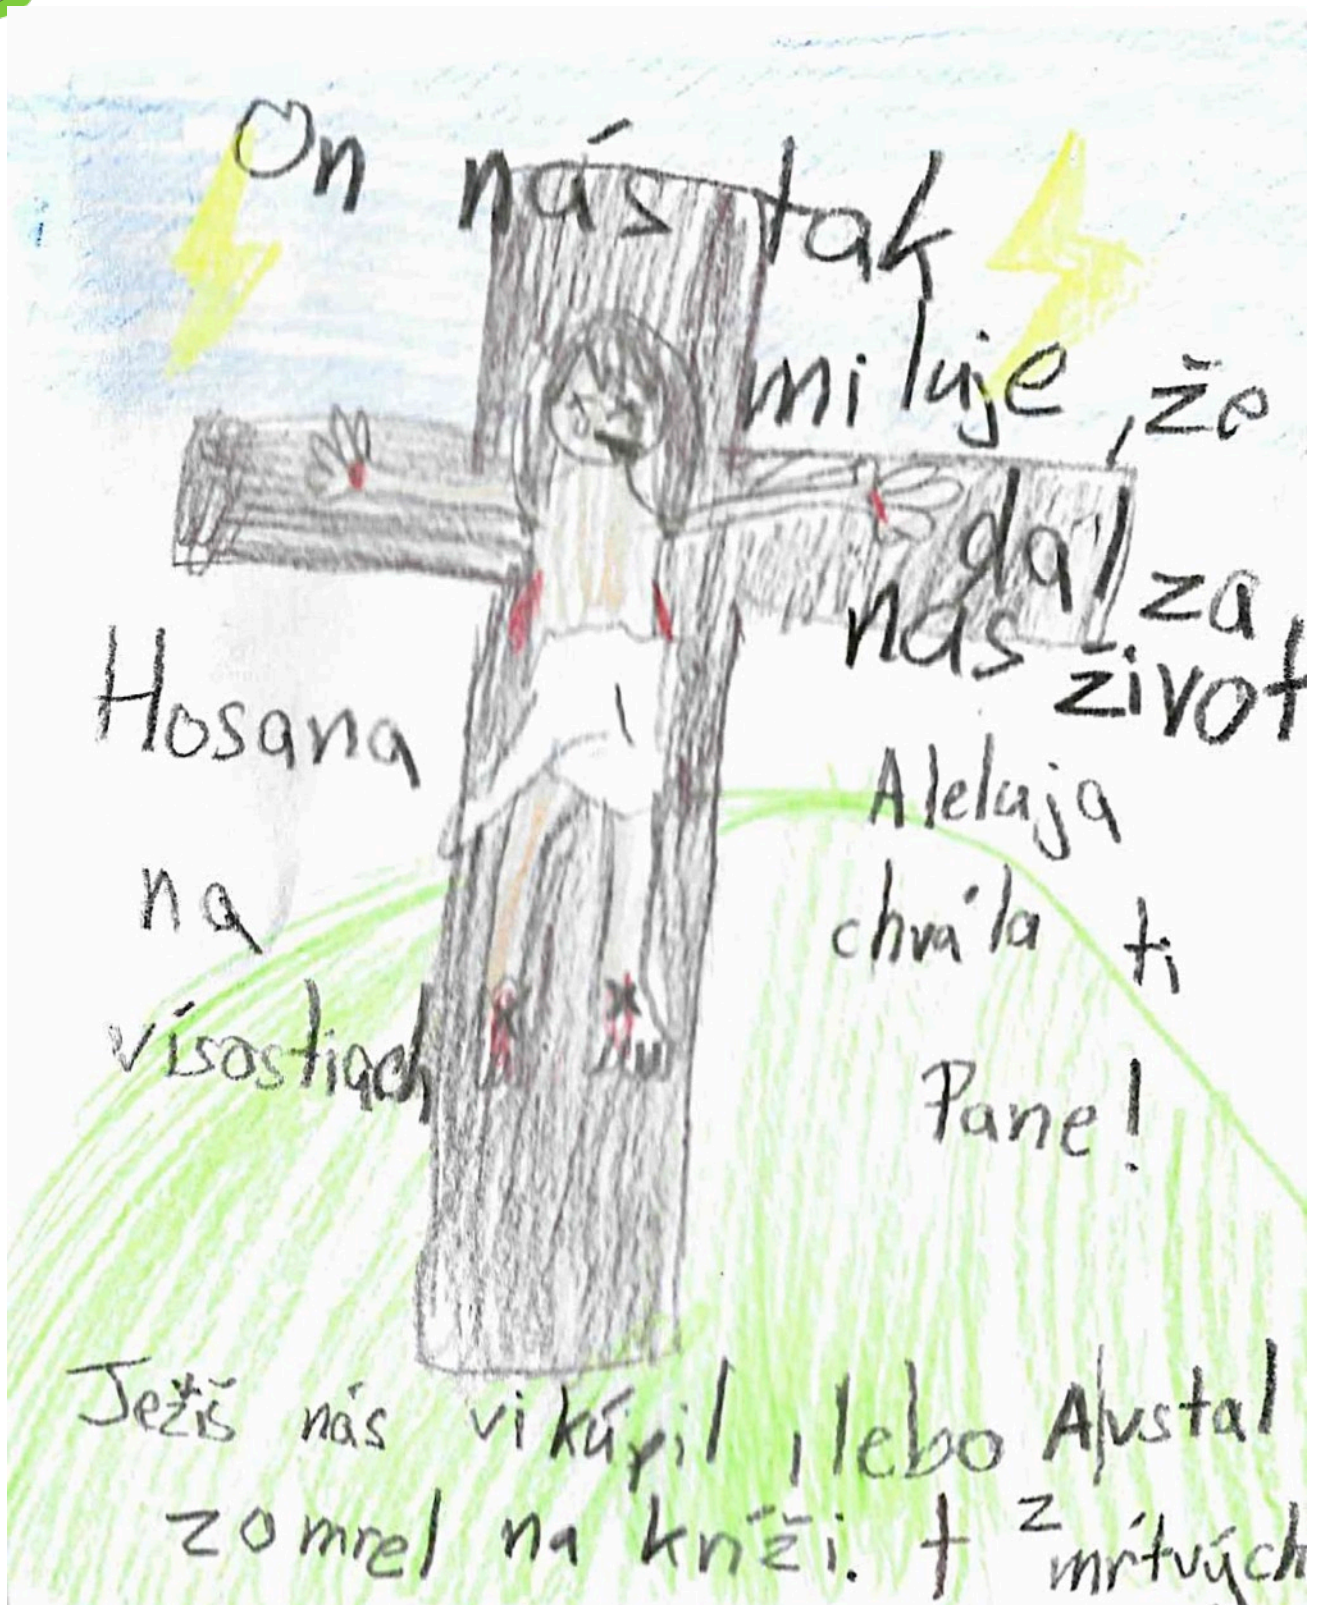 On nás tak
miluje, že
dal za
nás život
Hosana
na
vísostiach
Aleluja
chvála ti
Pane!
Ježiš nás vikúpil, lebo
zomrel na kríži. †
A vstal
z mŕtvých